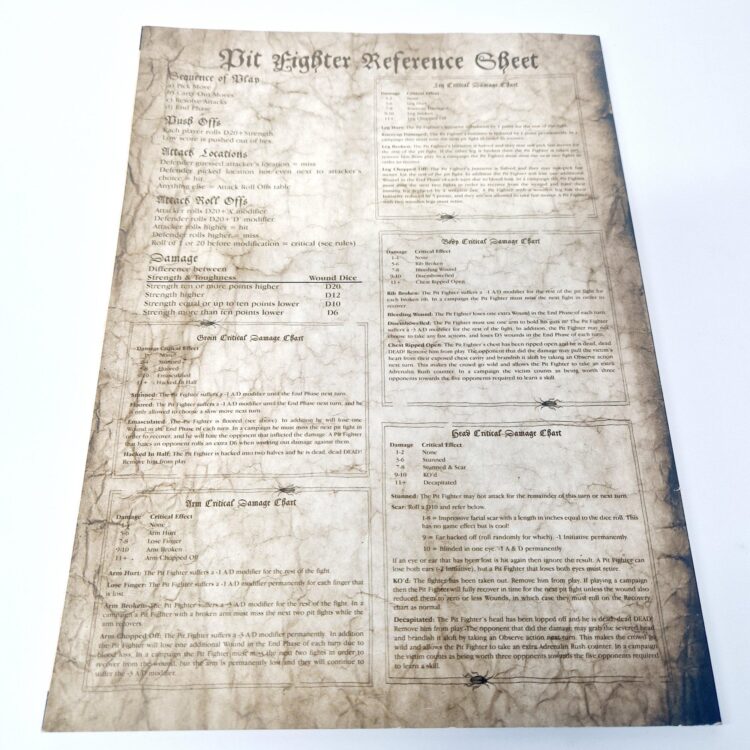 Pit Fighter Reference Sheet
Sequence of Play
a) Pick Move
b) Carry Out Moves
c) Resolve Attacks
d) End Phase
Push Offs
Each player rolls D20+Strength
Low score is pushed out of hex.
Attack Locations
Defender guessed attacker's location = miss
Defender picked location not even next to attacker's
choice = hit
Anything else = Attack Roll Offs table
Attack Roll Offs
Attacker rolls D20+'A' modifier
Defender rolls D20+ 'D' modifier
Attacker rolls higher = hit
Defender rolls higher = miss
Roll of 1 or 20 before modification = critical (see rules)
Damage
Difference between
Strength & Toughness Wound Dice
Strength ten or more points higher D20
Strength higher D12
Strength equal or up to ten points lower D10
Strength more than ten points lower D6
Groin Critical Damage Chart
Damage Critical Effect
None
Stunned
Floored
9-10 Emasculated
11+ Hacked In Half
Stunned: The Pit Fighter suffers a -1 A/D modifier until the End Phase next turn.
Floored: The Pit Fighter suffers a -1 A/D modifier until the End Phase next turn, and he
is only allowed to choose a slow move next turn.
Emasculated: The Pit Fighter is floored (see above). In addition he will lose one
Wound in the End Phase of each turn. In a campaign he must miss the next pit fight in
order to recover, and he will hate the opponent that inflicted the damage. A Pit Fighter
that hates an opponent rolls an extra D6 when working out damage against them.
Hacked In Half: The Pit Fighter is hacked into two halves and he is dead, dead DEAD!
Remove him from play.
Arm Critical Damage Chart
Damage Critical Effect
None
5-6 Arm Hurt
7-8 Lose Finger
9-10 Arm Broken
11+ Arm Chopped Off
Arm Hurt: The Pit Fighter suffers a -1 A/D modifier for the rest of the fight.
Lose Finger: The Pit Fighter suffers a -1 A/D modifier permanently for each finger that
is lost.
Arm Broken: The Pit Fighter suffers a -3 A/D modifier for the rest of the fight. In a
campaign a Pit Fighter with a broken arm must miss the next two pit fights while the
arm recovers.
Arm Chopped Off: The Pit Fighter suffers a -3 A/D modifier permanently. In addition
the Pit Fighter will lose one additional Wound in the End Phase of each turn due to
blood loss. In a campaign the Pit Fighter must miss the next two fights in order to
recover from the wound, but the arm is permanently lost and they will continue to
suffer the -3 A/D modifier.
Leg Critical Damage Chart
Damage Critical Effect
None
Leg Hurt
9-10 Leg Broken
11+ Leg Chopped Off
Body Critical Damage Chart
Damage Critical Effect
1-4 None
5-6 Rib Broken
7-8 Bleeding Wound
9-10 Disembowelled
11+ Chest Ripped Open
Rib Broken: The Pit Fighter suffers a -1 A/D modifier for the rest of the pit fight for
each broken rib. In a campaign the Pit Fighter must miss the next fight in order to
recover.
Bleeding Wound: The Pit Fighter loses one extra Wound in the End Phase of each turn.
Disembowelled: The Pit Fighter must use one arm to hold his guts in! The Pit Fighter
suffers a -3 A/D modifier for the rest of the fight. In addition, the Pit Fighter may not
choose to take any fast actions, and loses D3 wounds in the End Phase of each turn.
Chest Ripped Open: The Pit Fighter's chest has been ripped open and he is dead, dead
DEAD! Remove him from play. The opponent that did the damage may pull the victim's
heart from their exposed chest cavity and brandish it aloft by taking an Observe action
next turn. This makes the crowd go wild and allows the Pit Fighter to take an extra
Adrenalin Rush counter. In a campaign the victim counts as being worth three
opponents towards the five opponents required to learn a skill.
Head Critical Damage Chart
Damage Critical Effect
1-2 None
3-6 Stunned
7-8 Stunned & Scar
9-10 KO'd
11+ Decapitated
Stunned: The Pit Fighter may not attack for the remainder of this turn or next turn.
Scar: Roll a D10 and refer below.
1-8 = Impressive facial scar with a length in inches equal to the dice roll. This
has no game effect but is cool!
9 = Ear hacked off (roll randomly for which). -1 Initiative permanently
10 = Blinded in one eye -1 A & D permanently
If an eye or ear that has been lost is hit again then ignore the result. A Pit Fighter can
lose both ears (-2 Initiative), but a Pit Fighter that loses both eyes must retire.
KO'd: The fighter has been taken out. Remove him from play. If playing a campaign
then the Pit Fighter will fully recover in time for the next pit fight unless the wound also
reduced them to zero or less Wounds, in which case they must roll on the Recovery
chart as normal.
Decapitated: The Pit Fighter's head has been lopped off and he is dead, dead DEAD!
Remove him from play. The opponent that did the damage may grab the severed head
and brandish it aloft by taking an Observe action next turn. This makes the crowd go
wild and allows the Pit Fighter to take an extra Adrenalin Rush counter. In a campaign
the victim counts as being worth three opponents towards the five opponents required
to learn a skill.